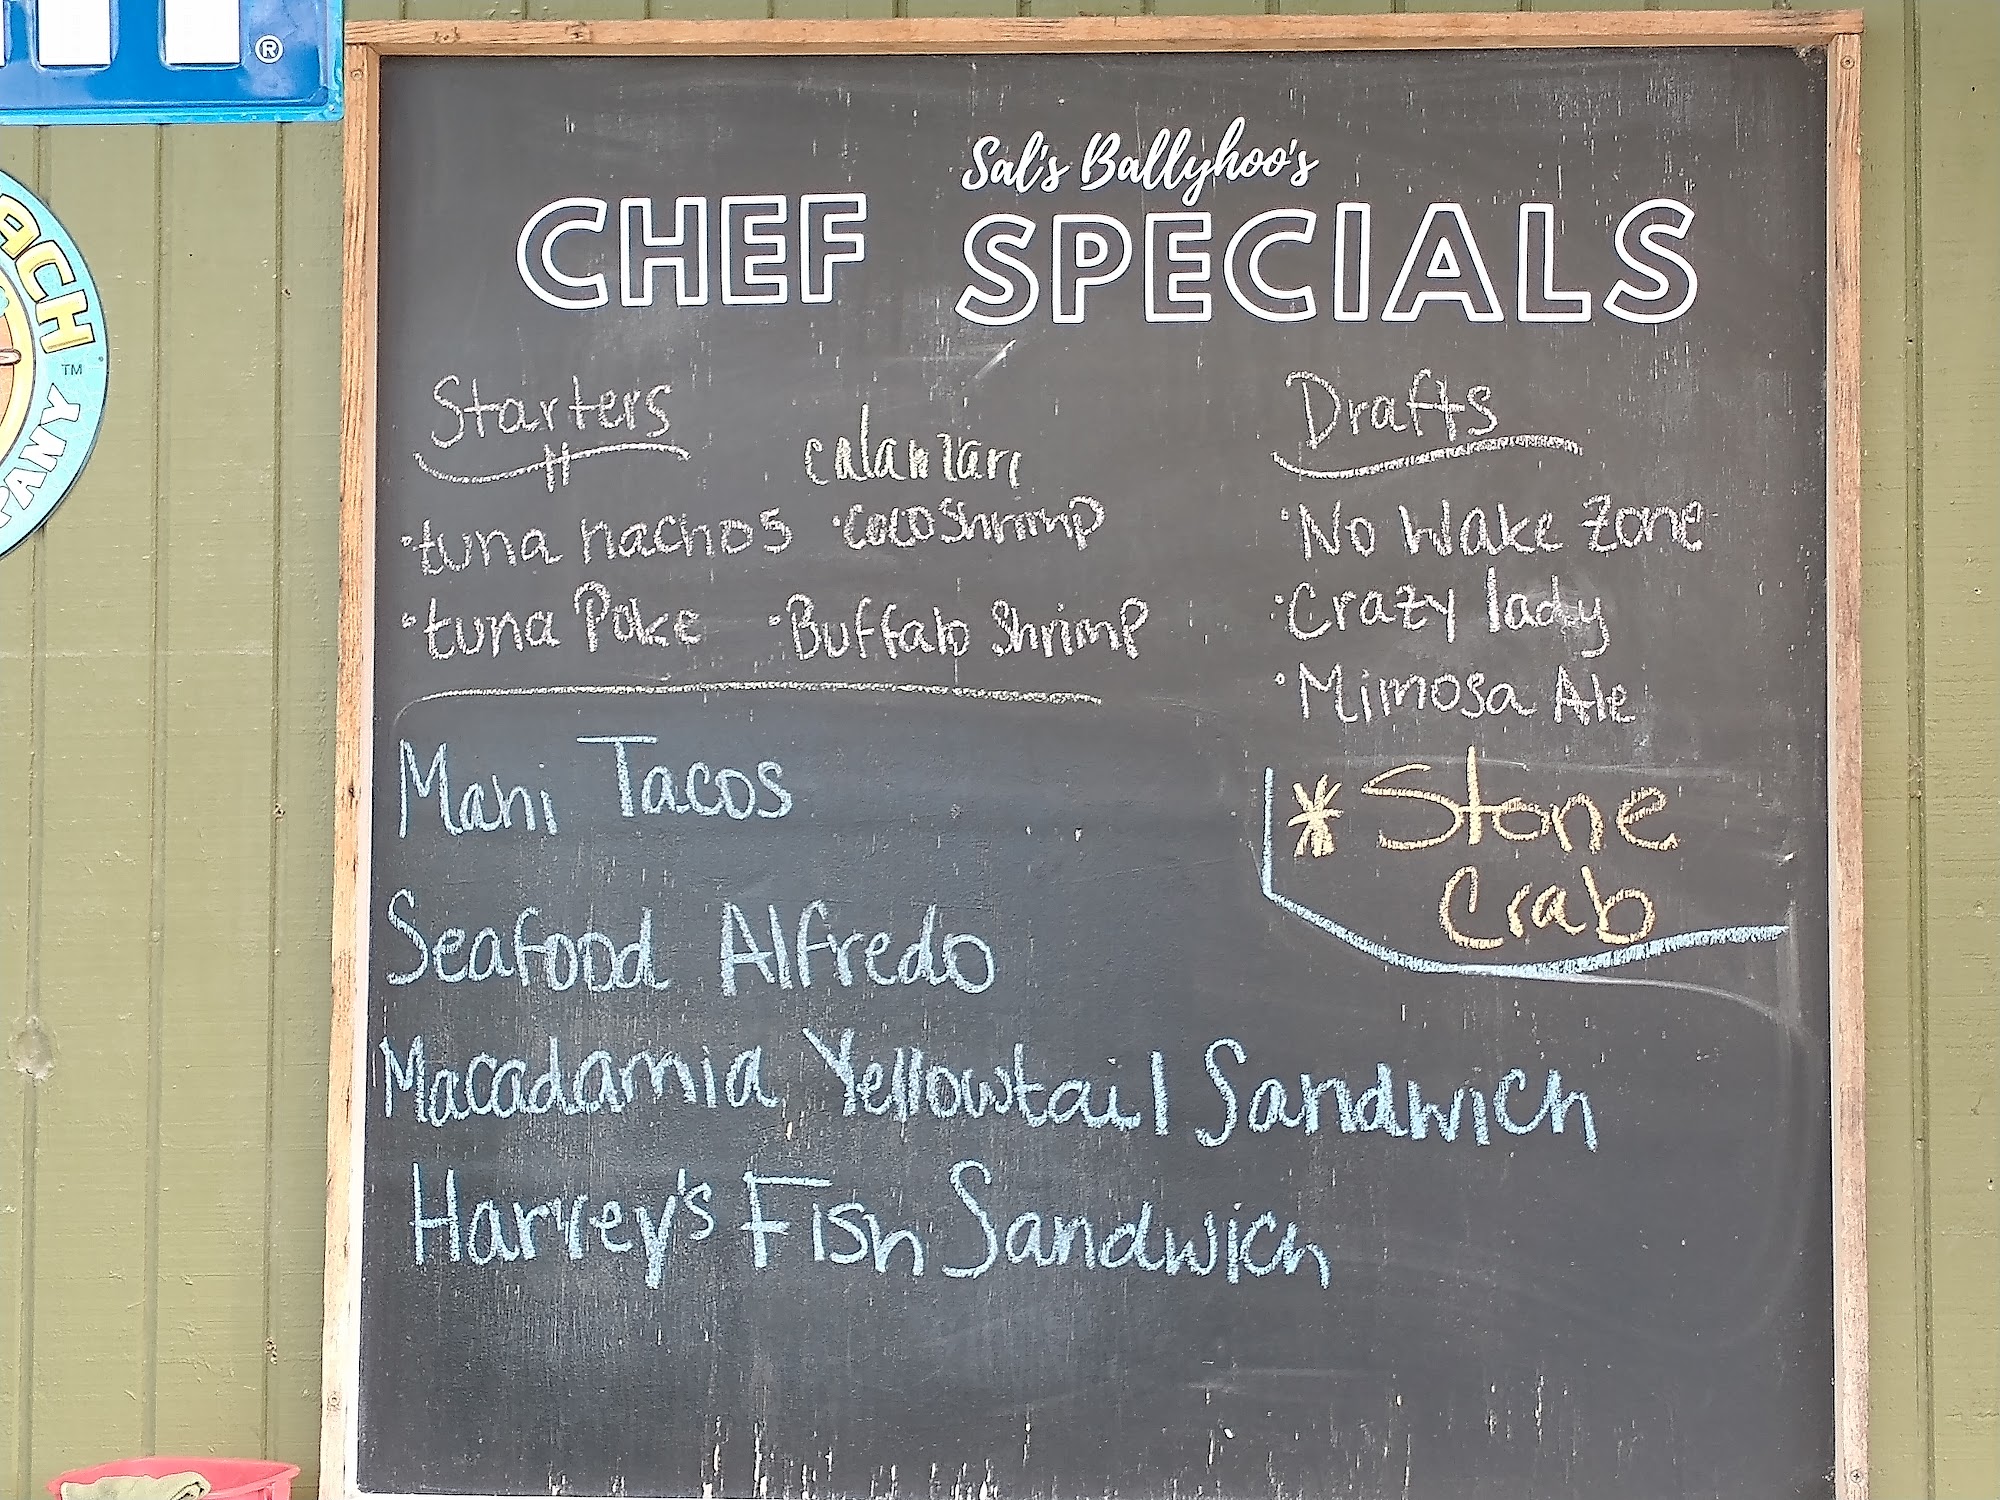 ®
ACH
TM
PANY
Sal's Ballyhoo's
CHEF SPECIALS
Starters
calamari
•tuna nachos •coco shrimp
•tuna Poke •Buffalo Shrimp
Drafts
•No Wake Zone
•Crazy lady
•Mimosa Ale
* Stone
Crab
Mahi Tacos
Seafood Alfredo
Macadamia Yellowtail Sandwich
Harvey's Fish Sandwich